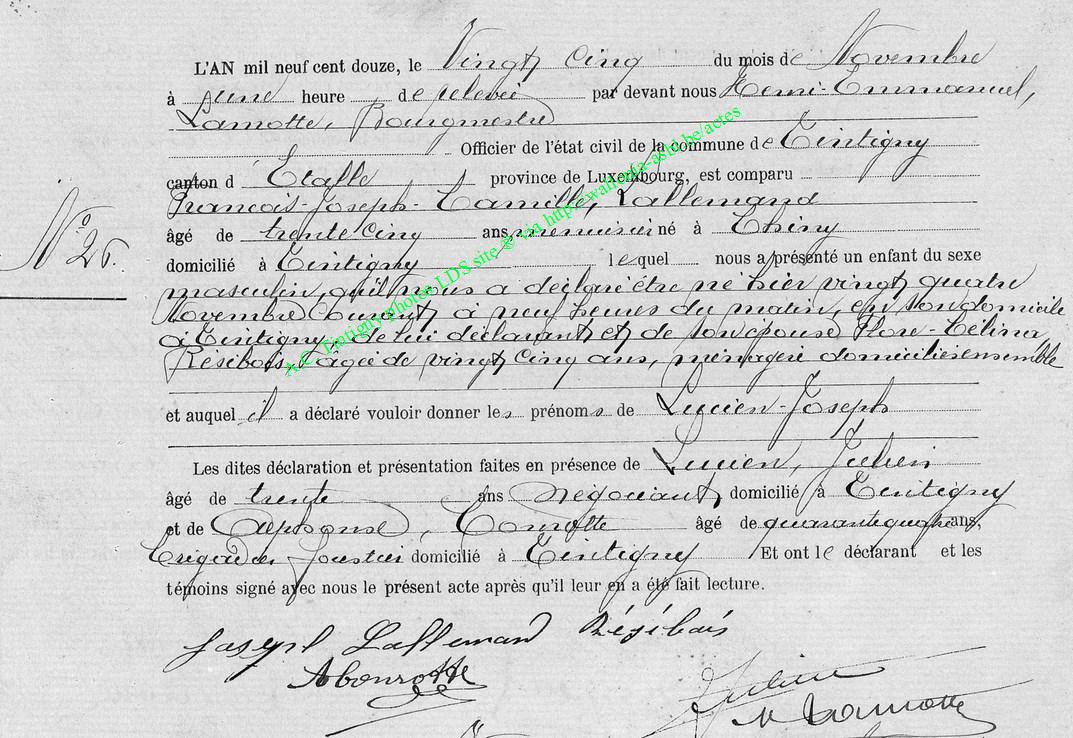 L'AN mil neuf cent douze, le Vingt cinq du mois de Novembre
à une heure de relevée par devant nous Henri-Emmanuel,
Lamotte, Bourgmestre
Officier de l'état civil de la commune de Tintigny
canton d Etalle province de Luxembourg, est comparu
François-Joseph-Camille, Lallemand
âgé de trente cinq ans, menuisier né à Chiny
N° 26.
domicilié à Tintigny lequel nous a présenté un enfant du sexe
masculin, qu'il nous a déclaré être né hier vingt quatre
Novembre courant à neuf heures du matin, en son domicile
à Tintigny, de lui déclarant et de son épouse Flore-Célina
Résibois, âgée de vingt cinq ans, ménagère domiciliés ensemble
et auquel il a déclaré vouloir donner les prénoms de Lucien-Joseph
Les dites déclaration et présentation faites en présence de Lucien, Julien
âgé de trente ans négociant domicilié à Tintigny
et de Alphonse, âgé de quarante quatre ans,
brigadier forestier domicilié à Tintigny Et ont le déclarant et les
témoins signé avec nous le présent acte après qu'il leur en a été fait lecture.
Joseph Lallemand Résibois
Julien
A.C. Tintigny photos LDS site @ via http://wallonia-asbl.be/actes